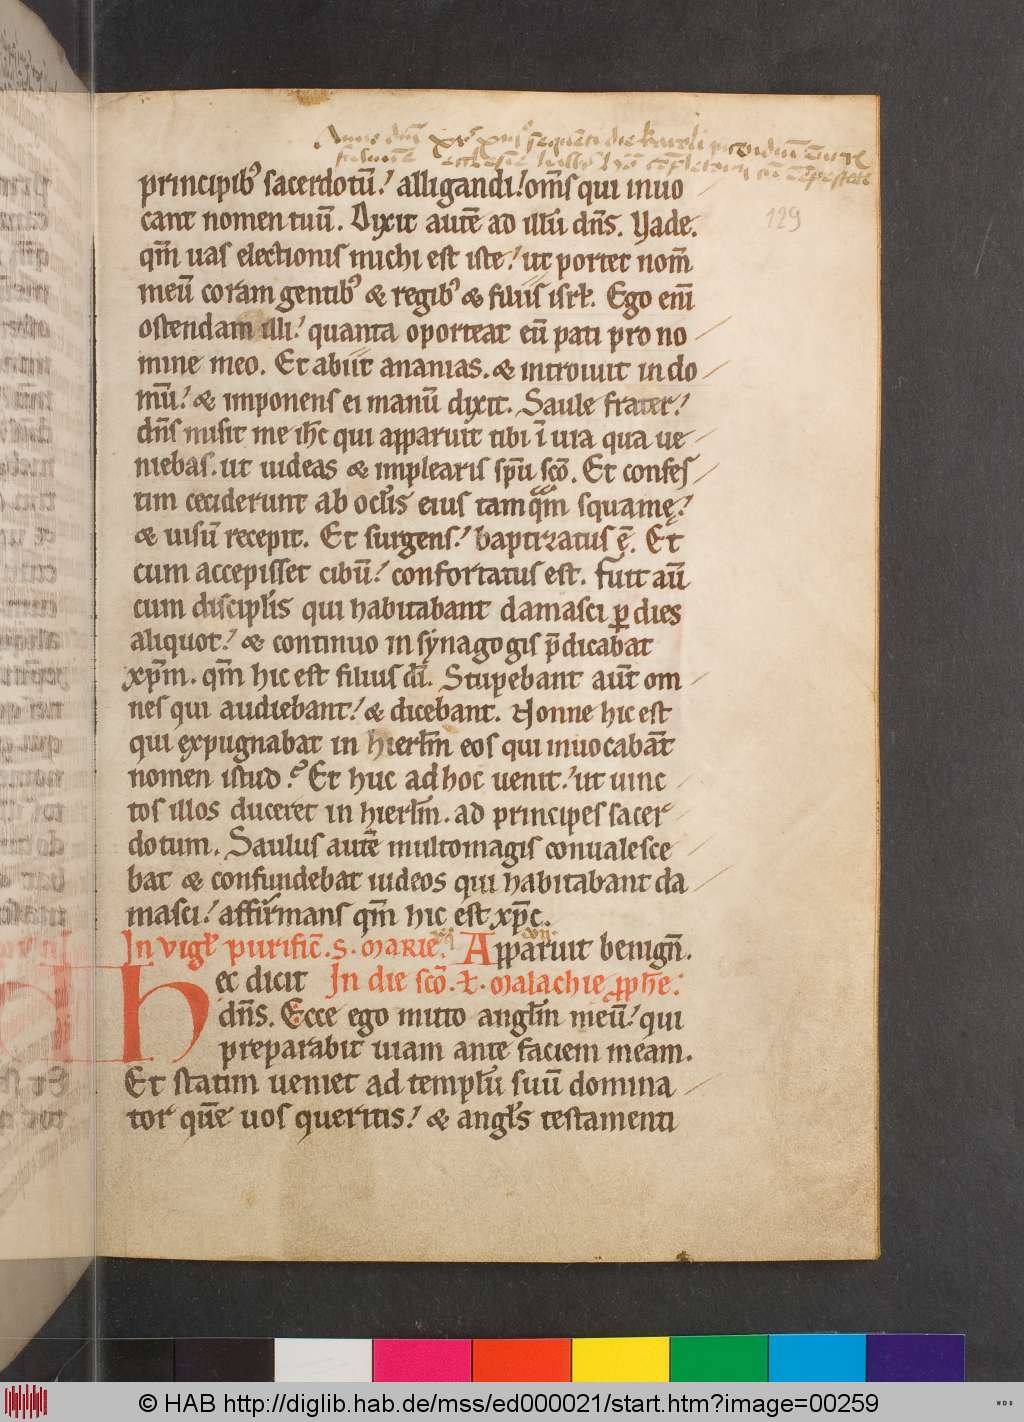 Anno dni xvc xviii sequenti die karoli
ecclesie
principib9 sacerdotū! alligandi! om̄s qui inuo
cant nomen tuū. Dixit autē ad illū dn̄s. Uade.
qm̄ uas electionis michi est iste! ut portet nom̄
meū coram gentib9 & regib9 & filiis isrl̄. Ego eni̅
ostendam illi! quanta oporteat eū pati pro no
mine meo. Et abiit ananias. & introiuit in do
mū! & imponens ei manū dixit. Saule frater!
dn̄s misit me ih̄c qui apparuit tibi ī uia qua ue
niebas. ut uideas & implearis sp̄u sc̄o. Et confes
tim ceciderunt ab ocl̄is eius tamqm̄ squamę!
& uisū recepit. Et surgens! baptizatus ē. Et
cum accepisset cibū! confortatus est. Fuit aū
cum discipl̄is qui habitabant damasci ꝑ dies
aliquot! & continuo in synagogis p̄dicabat
xp̄m. qm̄ hic est filius dī. Stupebant aūt om
nes qui audiebant! & dicebant. Nonne hic est
qui expugnabat in hierl̄m eos qui inuocabāt
nomen istud? Et huc ad hoc uenit! ut uinc
tos illos duceret in hierl̄m. ad principes sacer
dotum. Saulus autē multo magis conualesce
bat & confundebat iudeos qui habitabant da
masci! affirmans qm̄ hic est xp̄c.
In vigl̄ purific̄. S. MARIE. Apparuit benign̄.
Hec dicit In die sc̄o. t̄. Malachie ꝓph̄e.
dn̄s. Ecce ego mitto angl̄m meū! qui
preparabit uiam ante faciem meam.
Et statim ueniet ad templū suū domina
tor quē uos queritis! & angl̄s testamenti
129
© HAB http://diglib.hab.de/mss/ed000021/start.htm?image=00259